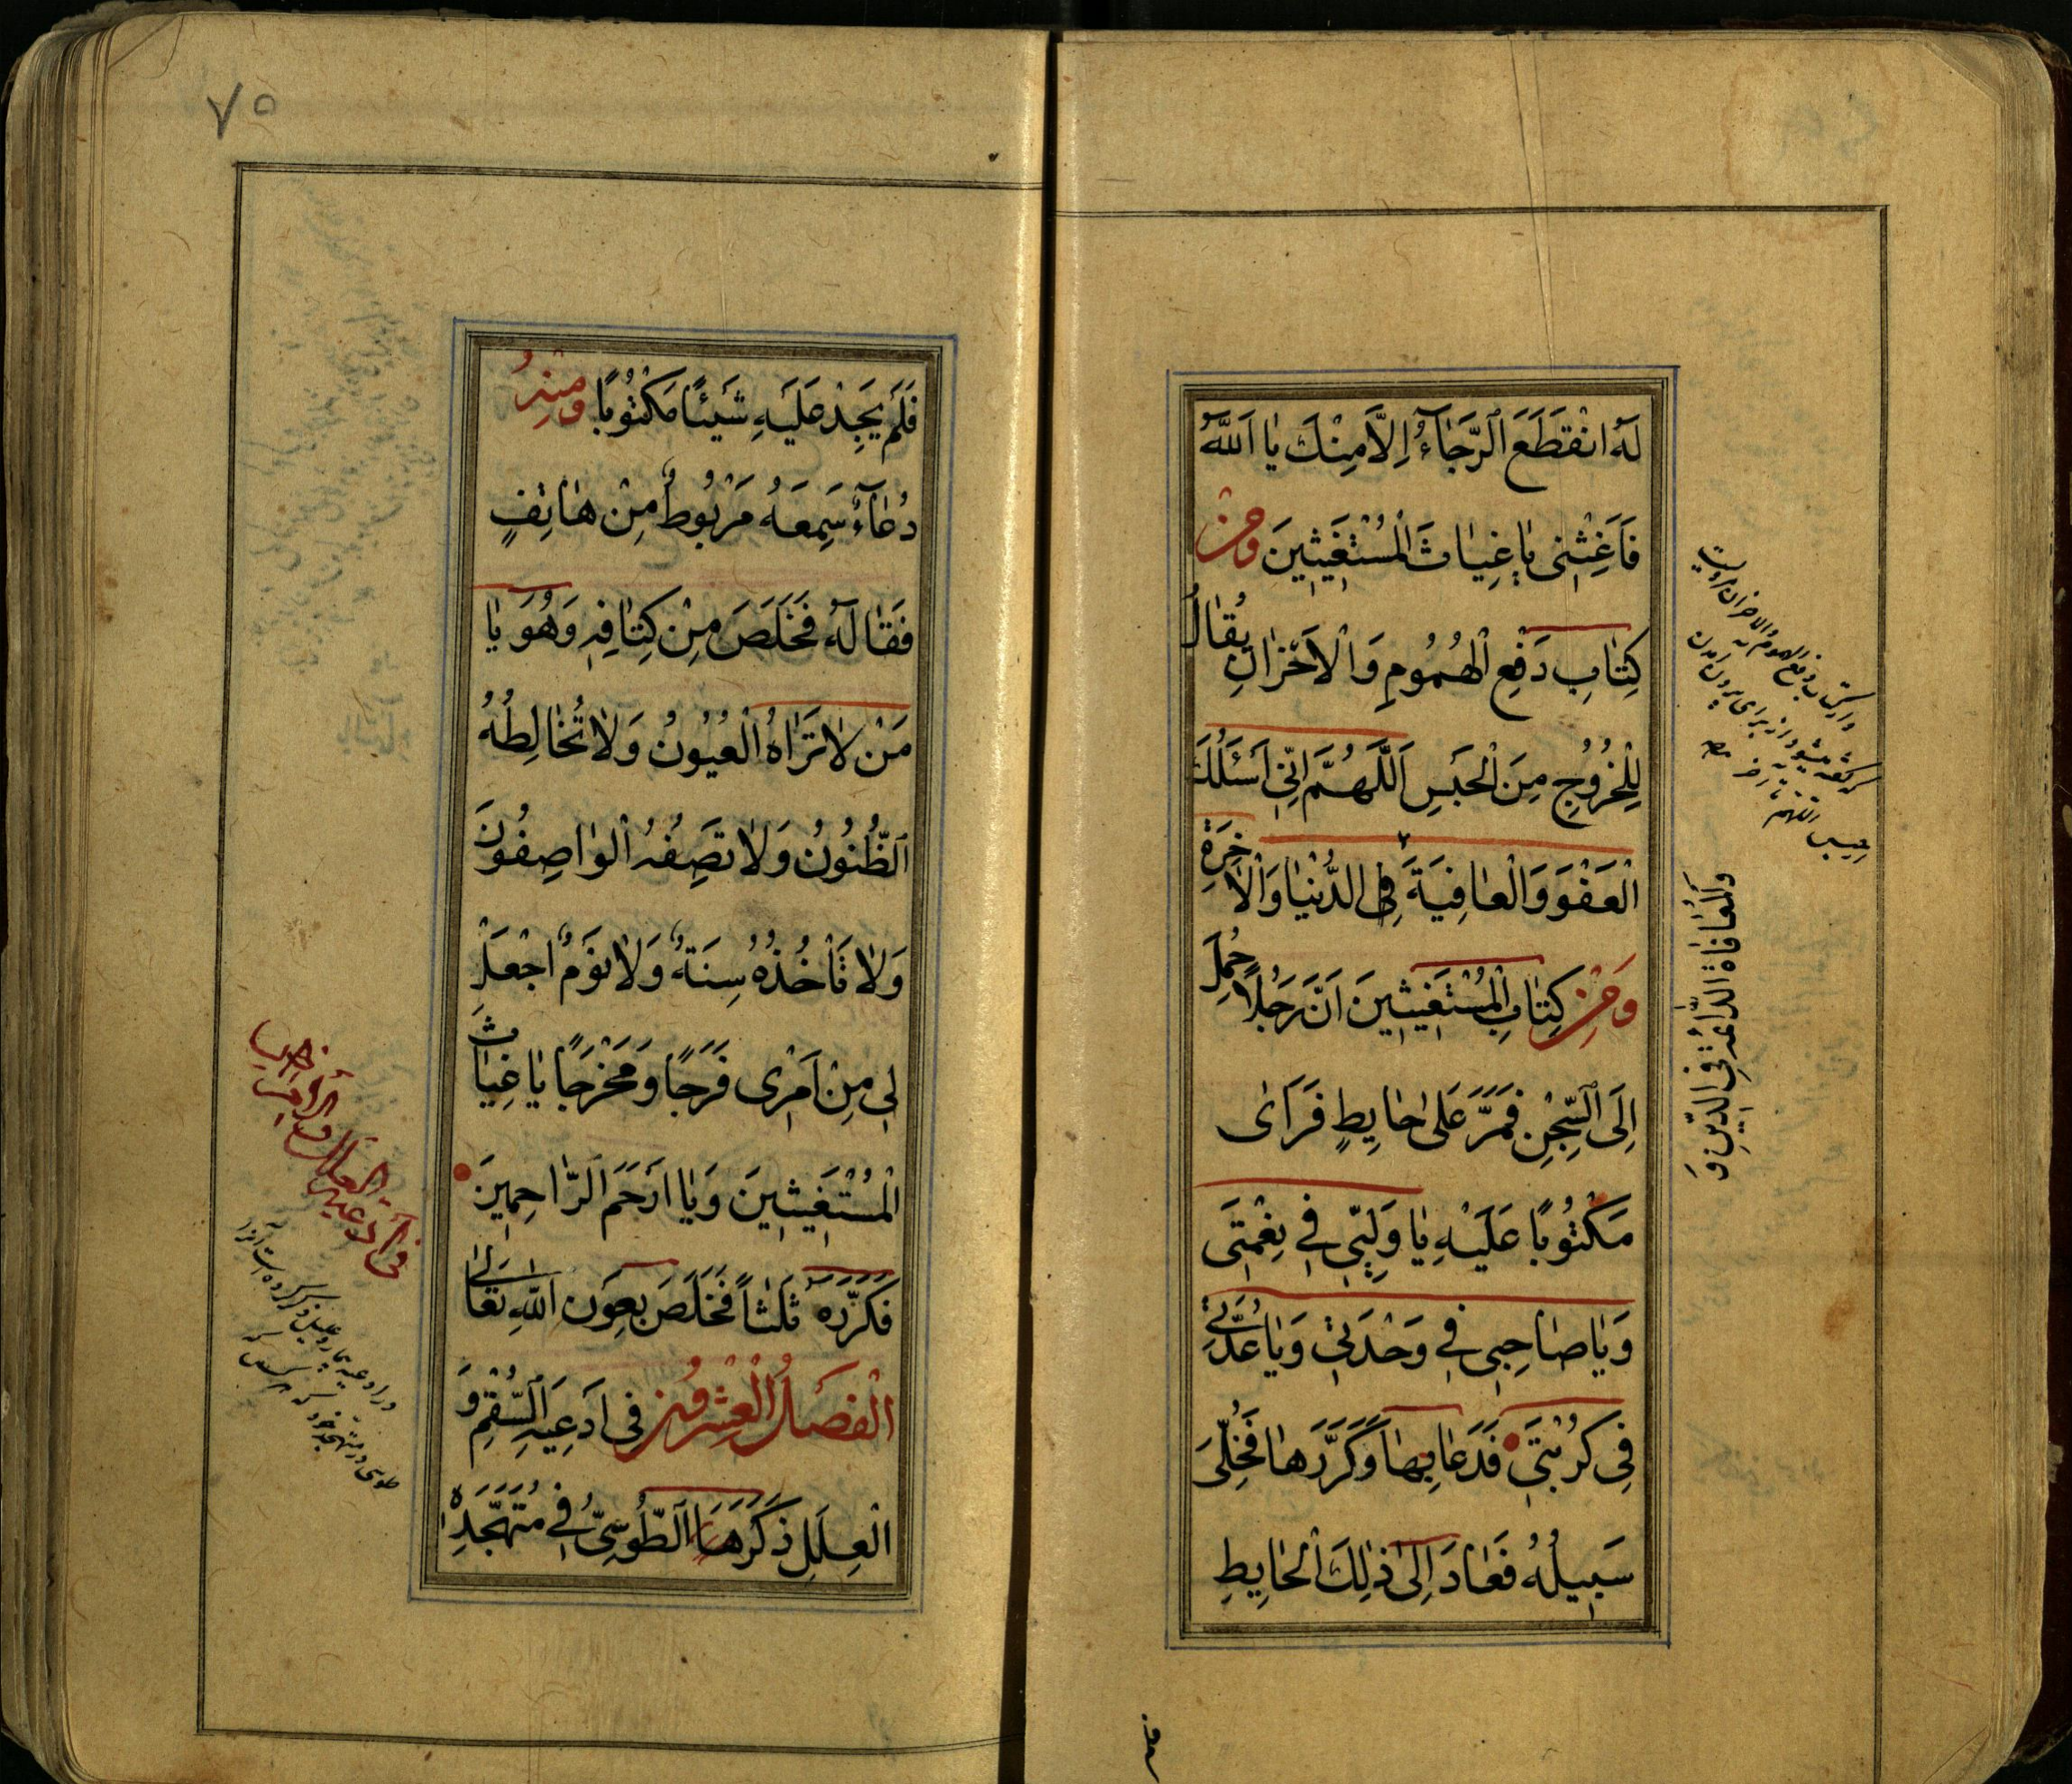 لَهُ انْقَطَعَ الرَّجَاۤءُ اِلَّا مِنْكَ يٰا اَللّٰهُ
فَاَغِثْنِى يٰا غِيٰاثَ الْمُسْتَغِيثِينَ وَمِنْ
كِتٰابِ دَفْعِ الْهُمُومِ وَالْاَحْزٰانِ يُقٰالُ
لِلْخُرُوجِ مِنَ الْحَبْسِ اَللّٰهُمَّ اِنِّى اَسْئَلُكَ
الْعَفْوَ وَالْعٰافِيَةَ فِى الدُّنْيٰا وَالْاٰخِرَةِ
وَمِنْ كِتٰابِ الْمُسْتَغِيثِينَ اَنَّ رَجُلًا حُمِلَ
اِلَى السِّجْنِ فَمَرَّ عَلىٰ حٰايِطٍ فَرَاَىٰ
مَكْتُوبًا عَلَيْهِ يٰا وَلِيّى فِى نِعْمَتِى
وَيٰا صٰاحِبِى فِى وَحْدَتِى وَيٰا عُدَّتِى
فِى كُرْبَتِى فَدَعٰا بِهٰا وَكَرَّرَهٰا فَخُلِّىَ
سَبِيلُهُ فَعٰادَ اِلىٰ ذٰلِكَ الْحٰايِطِ
وَالْمُعٰافٰاةَ الدّٰائِمَةَ فِى الدِّينِ وَ
٧٥
فَلَمْ يَجِدْ عَلَيْهِ شَيْئًا مَكْتُوبًا وَمِنْهُ
دُعٰاۤءٌ سَمِعَهُ مَرْبُوطٌ مِنْ هٰاتِفٍ
فَقٰالَهُ فَخَلَصَ مِنْ كِتٰافِهِ وَهُوَ يٰا
مَنْ لٰا تَرٰاهُ الْعُيُونُ وَلٰا تُخٰالِطُهُ
الظُّنُونُ وَلٰا تَصِفُهُ الْوٰاصِفُونَ
وَلٰا تَأْخُذُهُ سِنَةٌ وَلٰا نَوْمٌ اجْعَلْ
لِى مِنْ اَمْرِى فَرَجًا وَمَخْرَجًا يٰا غِيٰاثَ
الْمُسْتَغِيثِينَ وَيٰا اَرْحَمَ الرّٰاحِمِينَ
فَكَرَّرَهُ ثَلٰثاً فَخَلَصَ بِعَوْنِ اللّٰهِ تَعٰالىٰ
الْفَصْلُ الْعِشْرُونَ فِى اَدْعِيَةِ السُّقْمِ وَ
الْعِلَلِ ذَكَرَهَا الطُّوسِىُّ فِى مُتَهَجَّدِهِ